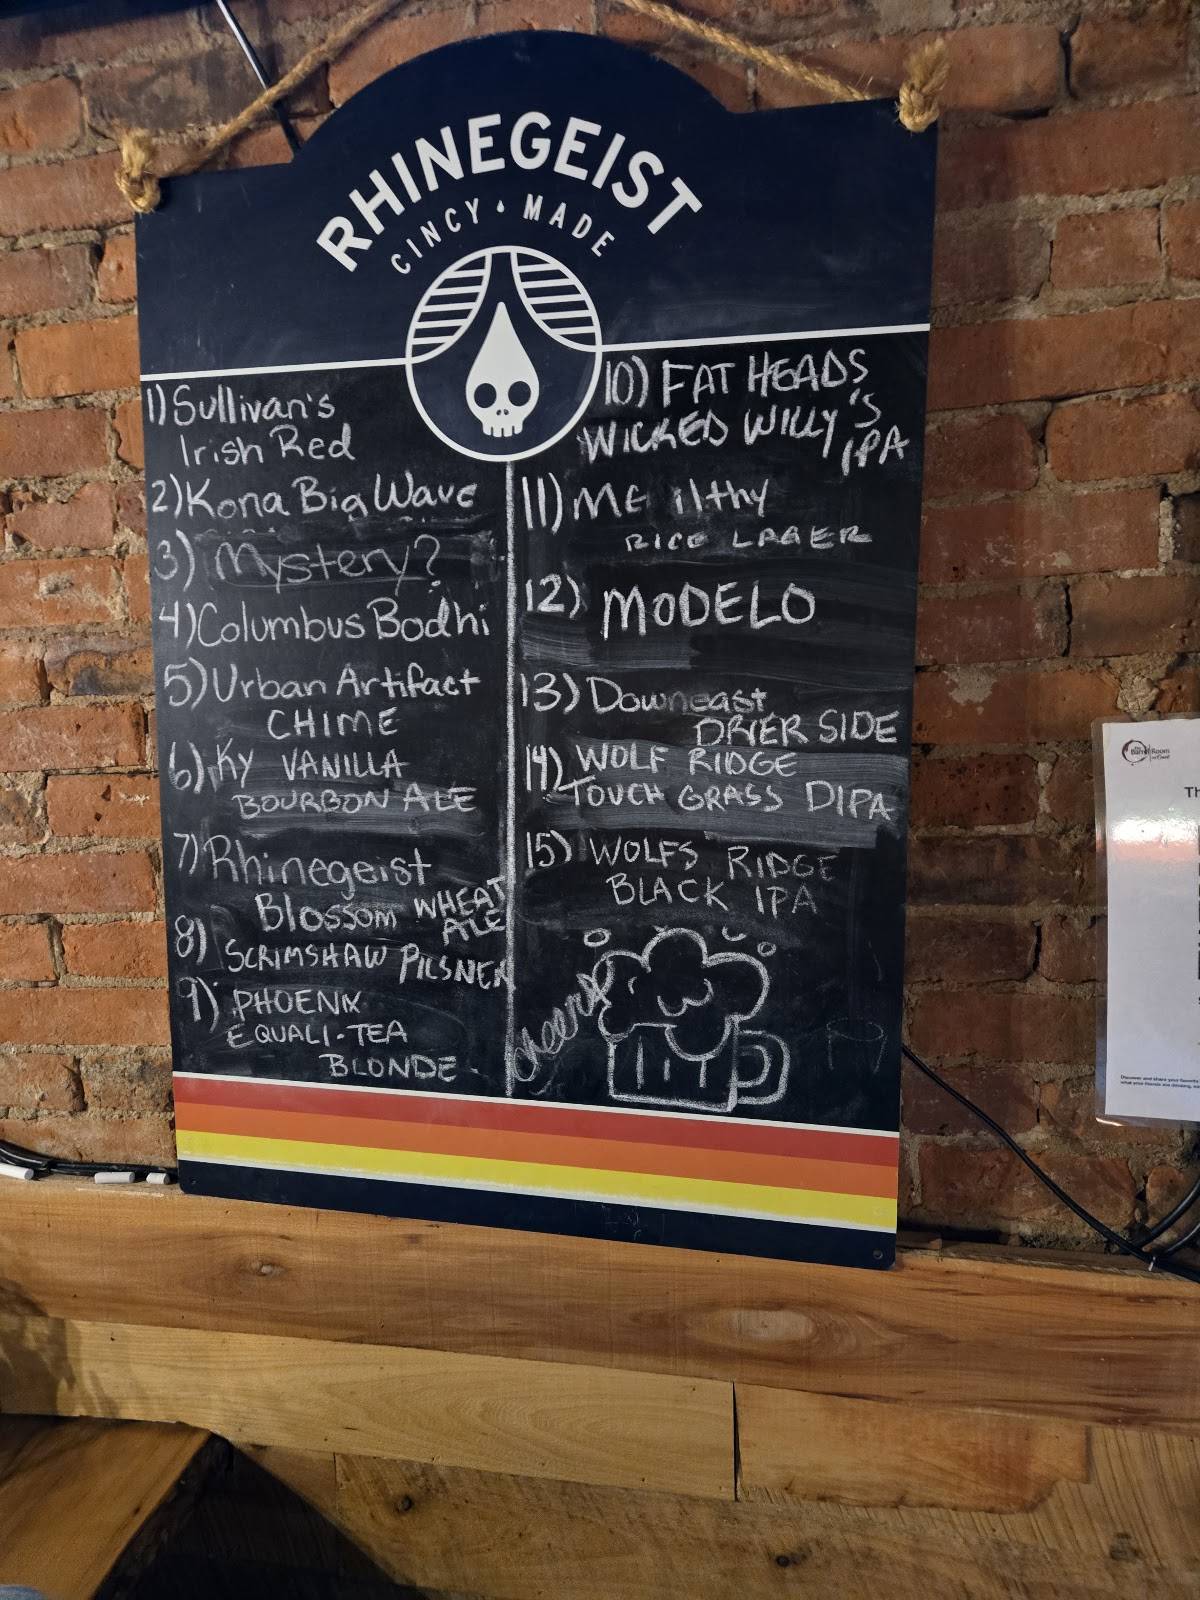 RHINEGEIST
CINCY • MADE
1) Sullivan's
Irish Red
2) Kona Big Wave
3) Mystery?
4) Columbus Bodhi
5) Urban Artifact
CHIME
6) KY VANILLA
BOURBON ALE
7) Rhinegeist
Blossom WHEAT
ALE
8) SCRIMSHAW PILSNER
9) PHOENIX
EQUALI-TEA
BLONDE
10) FAT HEADS
WICKED WILLY'S
IPA
11) ilthy
RICE LAGER
12) MODELO
13) Downeast
DRIER SIDE
14) WOLF RIDGE
TOUCH GRASS DIPA
15) WOLFS RIDGE
BLACK IPA
cheers
Barrel Room
Th
Discover and share your favorite
what your friends are drinking,